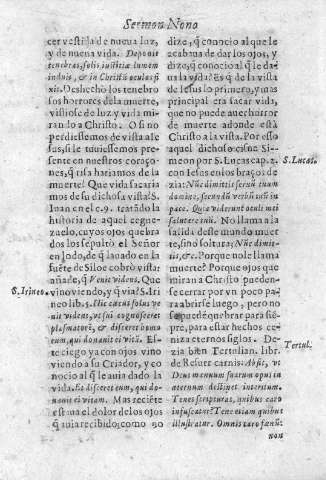 Sermon Nono
cer vestirla de nueva luz,
y de nueva vida. Deposit
tenebras, solis iustitiæ lumem
induit, & in Christū oculos fi
xit. Deshechò los tenebro
sos horrores de la muerte,
vistiose de luz y vida mi-
rando a Christo. O si no
perdiessemos de vista a Ie
sus, si le tuviessemos pre-
sente en nuestros coraço-
nes, q̄ risa hariamos de la
muerte! Que vida sacaria
mos de su dichosa vista! S.
Iuan en el c. 9. tratādo la
historia de aquel cegue-
zuelo, cuyos ojos quebra
dos los sepultò el Señor
en lodo, de q̄ lauado en la
fuēte de Siloe cobrò vistar
añade, q̄ Venit videns. Que
vino viendo, y q̄ via? S. Iri
neo lib. 5. Hic cæcus solus ve
nit videns, vt sui cognosceret
plasmatorē, & disceret homi
eum, qui donauit ei vitā. Es-
te ciego ya con ojos vino
viendo a su Criador, y co
nocio al q̄ le auia dado la
vida. Et disceret eum, qui do-
nauit ei vitam. Mas reciēte
estaua el dolor de los ojos
q̄ auia recibido; como no
dize, q̄ conocio al que le
acabaua de dar los ojos, y
dize, q̄ conocio al q̄ le da-
ua la vida? Es q̄ de la vista
de Iesus lo primero, y mas
principal era sacar vida,
que no puede auer horror
de muerte adonde està
Christo a la vista. Por esso
aquel dichoso cisne Si-
meon por S. Lucas cap. 2.
con Iesus en los braços de
zia: Nūc dimittis seruū tuum
domine, secundū verbū tuū in
pace. Quia viderunt oculi mei
salutare tuū. No llama a la
salida deste mundo muer
te, sino soltura; Nūc dimit-
tis, &c. Porque no le llama
muerte? Porque ojos que
miran a Christo pueden-
se cerrar por vn poco pa-
ra abrirse luego, pero no
se puedē quebrar para siē-
pre, para estar hechos ce-
niza eternos siglos. De-
zia biē Tertulian. libr.
de Resurr carnis: Absit, vt
Deus manuum suarum opus in
æternum destinet interitum.
Tenes scripturas, quibus caro
infuscatur? Tene etiam quibus
illustratur. Omnis caro fœnū:
non
S. Irineo.
S. Lucas.
Tertul.